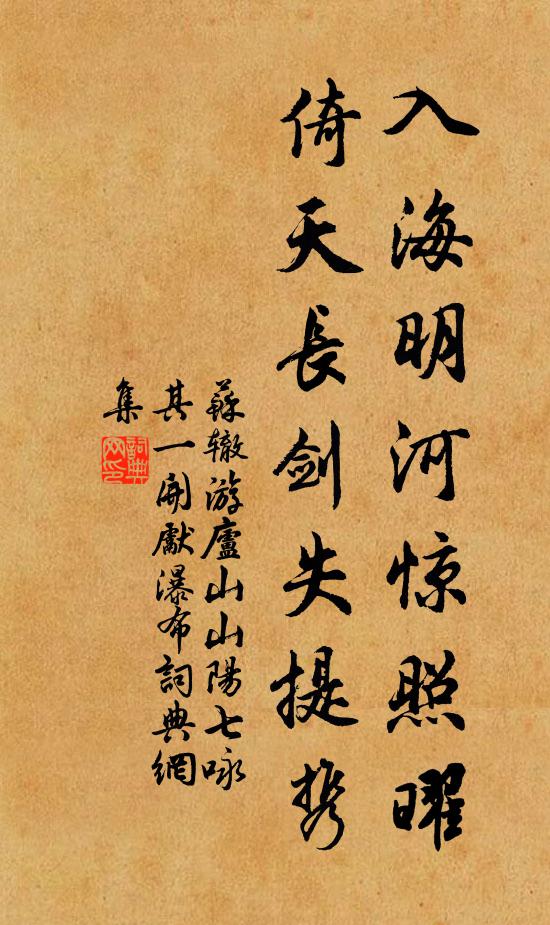 入海明河惊照曜
倚天長剑失提携
蘇辙游廬山山陽七咏
其一開獻瀑布詞典網
集
詞典網印